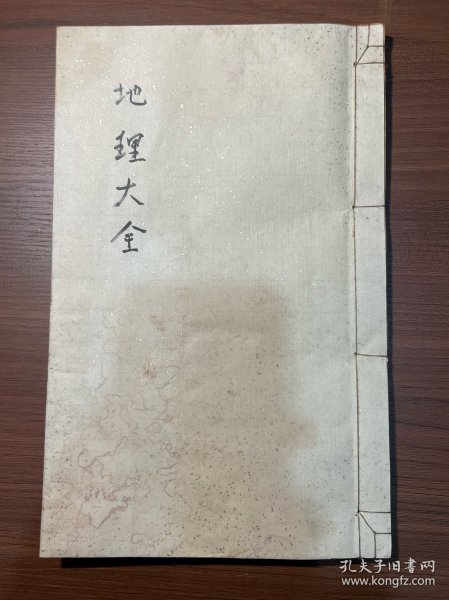 地理大全
孔夫子旧书网
www.kongfz.com